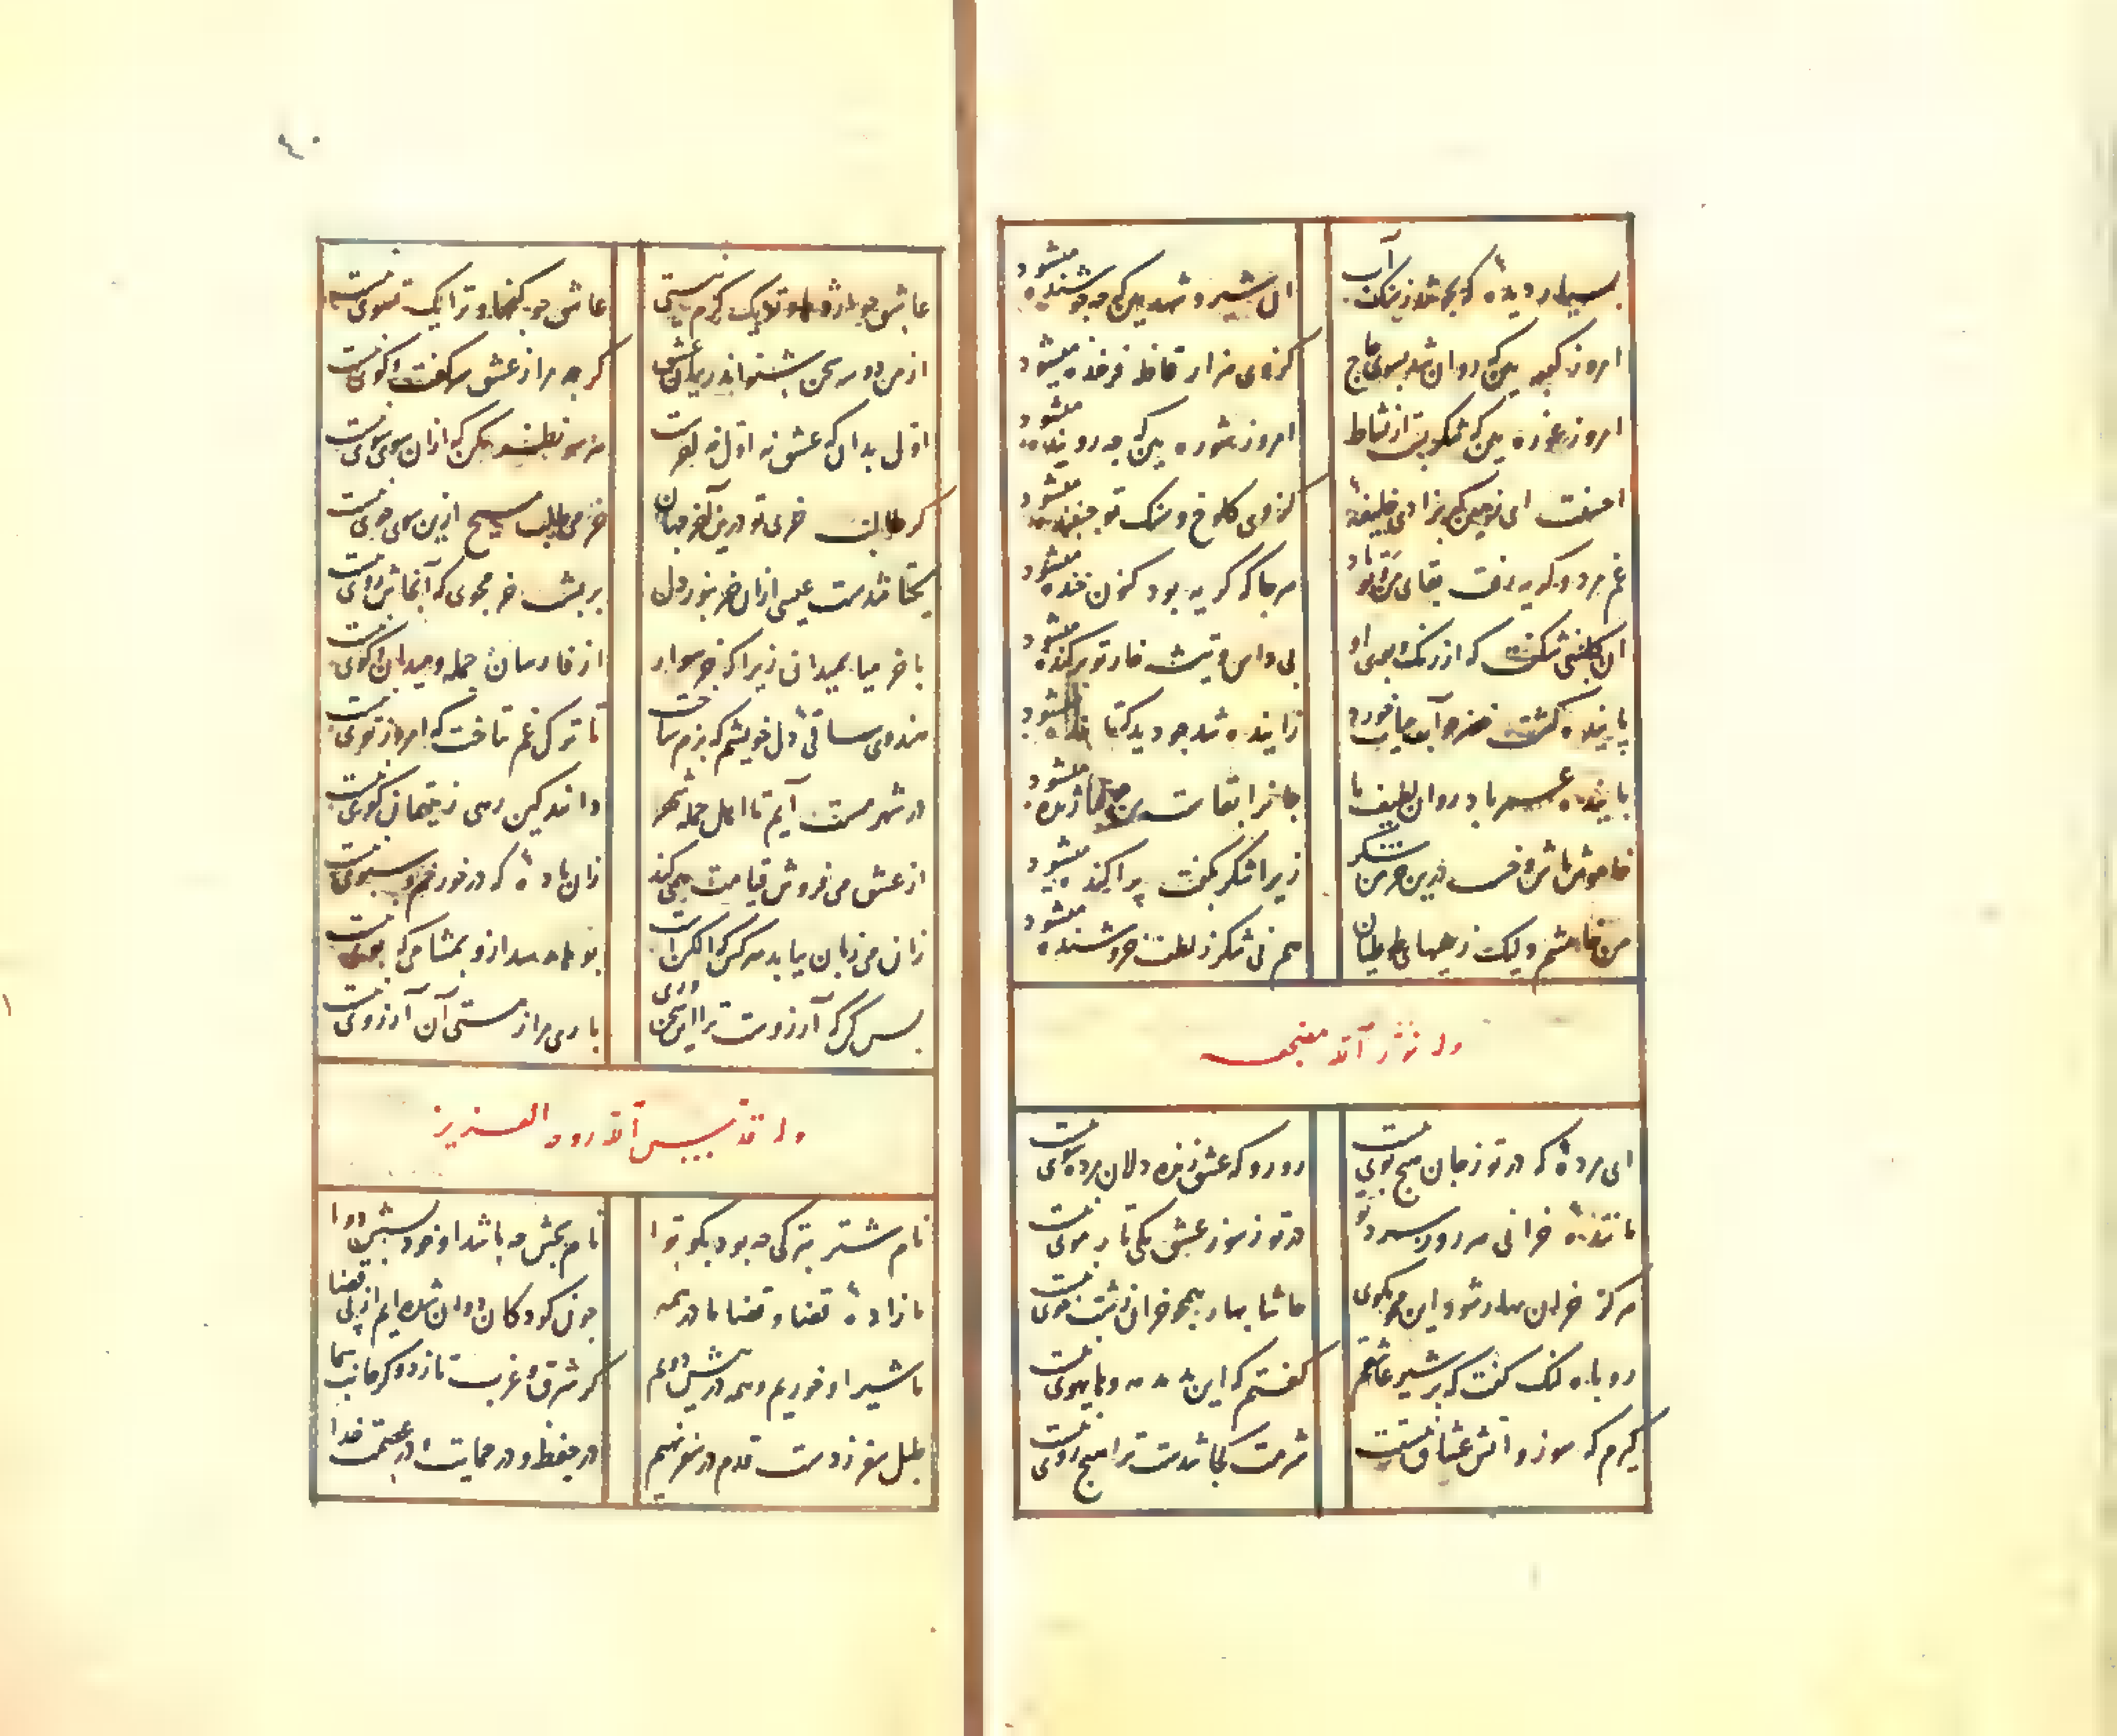 بسیار دیده که بجوشد ز سنک آب
آن شیر و شهد بین که چه جوشنده میشود
امروز کعبه بین که روان شد بسوی حاج
کز وی هزار قافله فرخنده میشود
امروز غوره بین که شکر بست از نشاط
امروز شوره بین که چه روینده میشود
کز وی کلوخ و سنک تو جنبنده میشود
غم مرد و کریه رفت بقای من و تو باد
هر جا که کریه بود کنون خنده میشود
آن کلشنی شکفت که از رنک و بوی او
بی داس و تیشه خار تو برکنده میشود
پاینده کشت خضر که آب حیات خورد
پاینده عمر باد روان لطیف ما
جانرا بقاست
خاموش باش و خسب درین خرمن شکر
زیرا شکر بکفت پراکنده میشود
من خامشم ولیک ز هیهای طوطیان
هم نی شکر ز لطف خروشنده میشود
وله نوّر الله مضجعه
ای مرده که در تو ز جان هیچ بوی نیست
رو رو که عشق زنده دلان مرده شوی نیست
ماننده خزانی هر روز سردتر
در تو ز سوز عشق یکی تای موی نیست
هرکز خزان بهار شود این مجو مکوی
حاشا بهار همچو خزان زشت خوی نیست
روباه لنک کفت که بر شیر عاشقم
کفتم که این و های هوی نیست
کیرم که سوز و آتش عشاق نیستت
شرمت کجا شدست ترا هیچ روی نیست
٤٠
عاشق چو اژدها و تو یک کرم نیستی
عاشق چو کنجها و ترا یک تسوی نیست
از من دو سه سخن شنو اندر بیان عشق
کرچه مرا ز عشق سر کفت و کوی نیست
اول بدان که عشق نه اول نه آخرست
هر سو نظر مکن که از آن سوی سوی نیست
کر طالب خری تو درین آخر جهان
خر می طلب مسیح ازین سوی جوی نیست
یکتا شدست عیسی از آن خر بنور دل
با خر میا بمیدان زیرا که خر سوار
از فارسان حمله و میدان و کوی نیست
هندوی ساقی دل خویشم که بزم ساخت
تا ترک غم نتاخت که امروز توی نیست
در شهر مست آیم تا اهل جمله شهر
دانند کین رهی ز یتیمان کوی نیست
از عشق می فروش قیامت همی کند
زان باده که در خور خم و سبوی نیست
زان می زبان بیابد هر کس که الکن است
بس کن که آرزوست ترا این سخن وری
باری مرا ز مستی آن آرزوی نیست
وله قدّس الله روحه العزیز
نام شتر بترکی چه بود بکو توا
نام بچش چه باشد او خود پیش دوا
ما زاده قضا و قضا مادر همه
چون کودکان دوان شده ایم از پی قضا
ما شیر ازو خوریم و همه در پیش دویم
کر شرق و غرب تازد و کر جانب سما
طبل سفر زدست قدم در سفر نهیم
در حفظ و در حمایت و در عصمت خدا